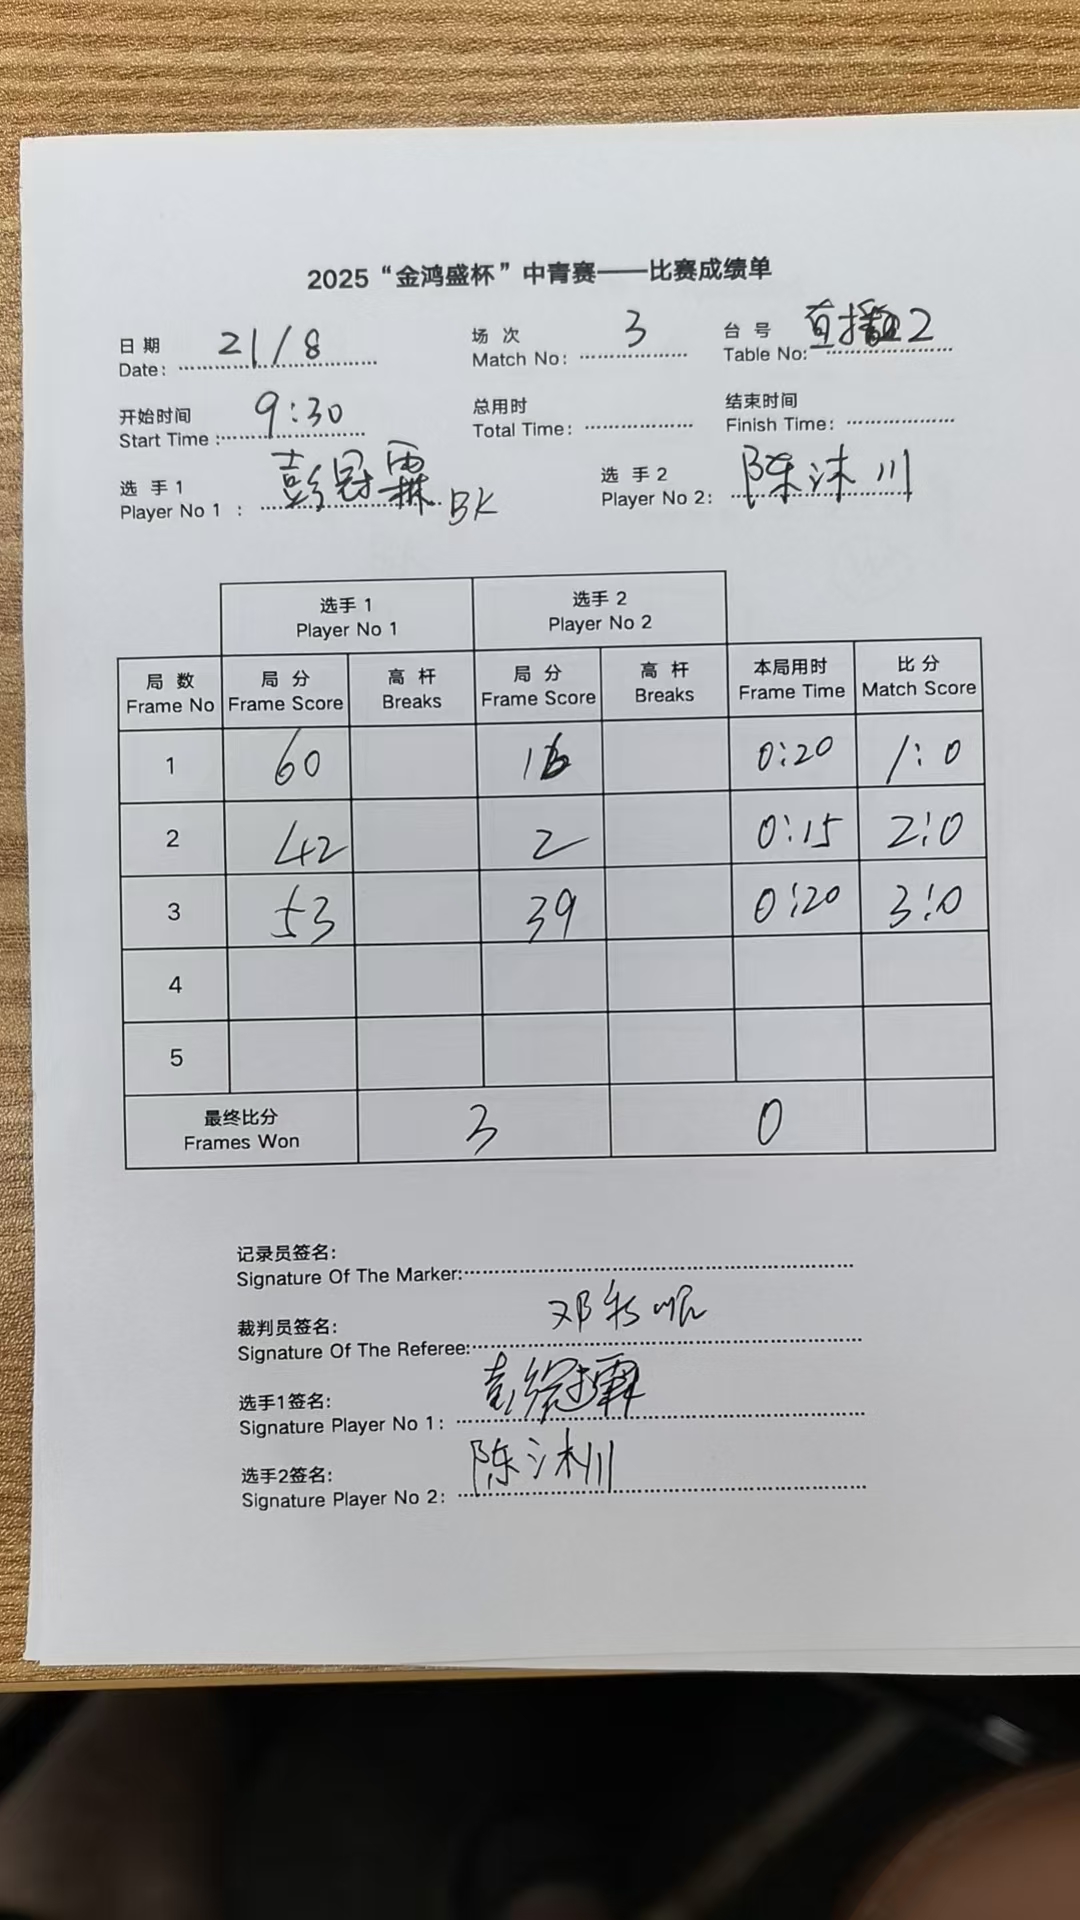 2025“金鸿盛杯”中青赛——比赛成绩单
日 期 21/8 场 次 3 台 号 直播 2
Date: Match No: Table No:
开始时间 9:30 总用时 结束时间
Start Time : Total Time: Finish Time:
选 手 1 彭冠霖 BK 选 手 2 陈沐川
Player No 1 : Player No 2:
选手 1 选手 2
Player No 1 Player No 2
局 数 局 分 高 杆 局 分 高 杆 本局用时 比 分
Frame No Frame Score Breaks Frame Score Breaks Frame Time Match Score
1 60 16 0:20 1:0
2 42 2 0:15 2:0
3 53 39 0:20 3:0
4
5
最终比分 3 0
Frames Won
记录员签名:
Signature Of The Marker:
裁判员签名: 邓
Signature Of The Referee:
选手1签名: 彭冠霖
Signature Player No 1:
选手2签名: 陈沐川
Signature Player No 2: